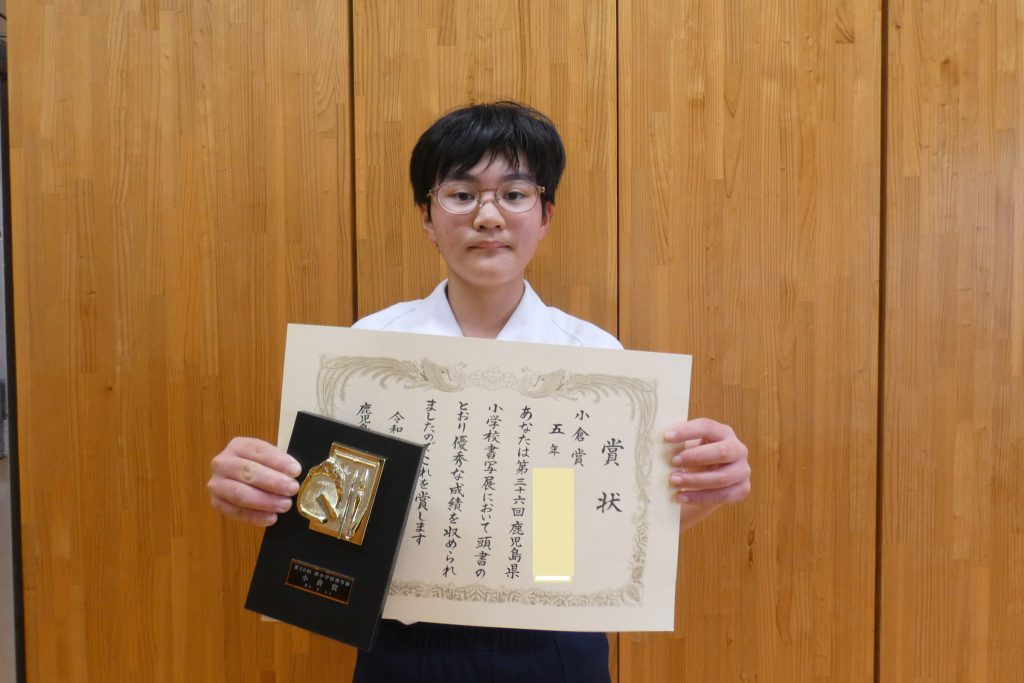 賞状
小倉賞
五年
あなたは第三十六回鹿児島県
小学校書写展において頭書の
とおり優秀な成績を収められ
ましたのでこれを賞します
令和
鹿児島
第36回 県小学校書写展
小倉賞